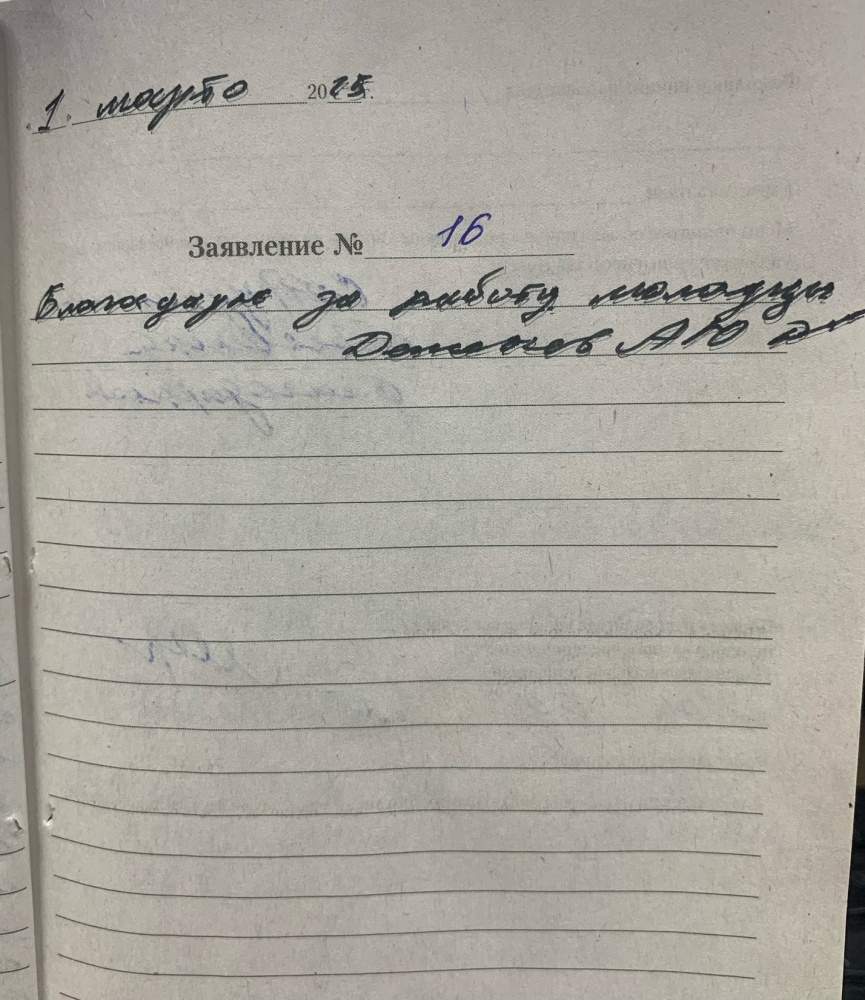 "1" марта 2025 г.
Заявление № 16
Благодарю за работу молодцы
А Ю